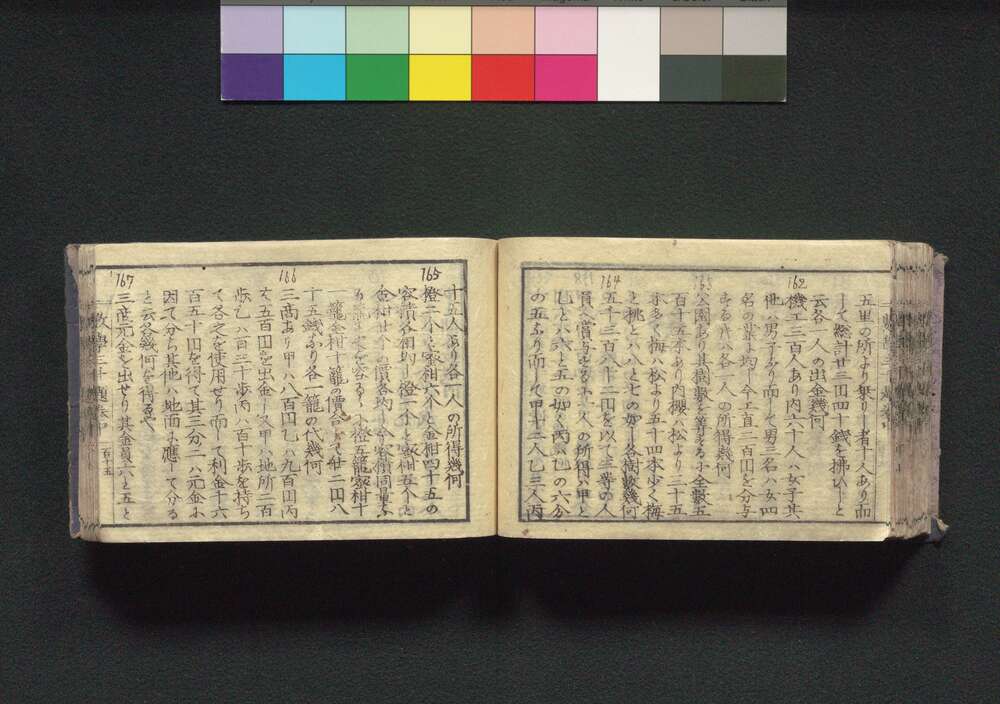 五里の所より乗りし者十人あり而
して総計廿三円四十銭を拂ひしと
云各一人の出金幾何
162
機工三百人あり内六十人ハ女子其
他ハ男子なり而して男三名ハ女四
名の業に均し今工直二百円を分与
する片ハ各一人の所得幾何
163
公園あり其樹数を算するに全数五
百十五本あり内櫻ハ松より三十五
本多く梅ハ松より五十四本少く梅
と桃とハ八と七の如し各樹数幾何
164
五千三百八十二円を以て三等の人
員へ賞与する
乙とハ六と五の如く丙ハ乙の六分
の五なり而して甲十二人乙三人丙
165
十五人あり各一人の所得幾何
橙二个と蜜柑六个と金柑四十五の
容積各相均し橙二个と蜜柑五个と
金柑廿个の價各均し今容積同量な
橙五籠蜜柑十
一籠金柑十籠の價合して廿二円八
十五銭なり各一籠の代幾何
166
三商あり甲ハ八百円乙ハ九百円丙
ハ五百円を出金し又甲ハ地所二百
歩乙ハ百三十歩丙ハ百十歩を持ち
て各之を使用せり而して利金千六
百五十円を得て其三分二ハ元金に
因て分ち其他ハ地面に應して分る
と云各幾何を得るや
167
三度元金を出せり其金員六と五と
数學三千題巻口
百十五